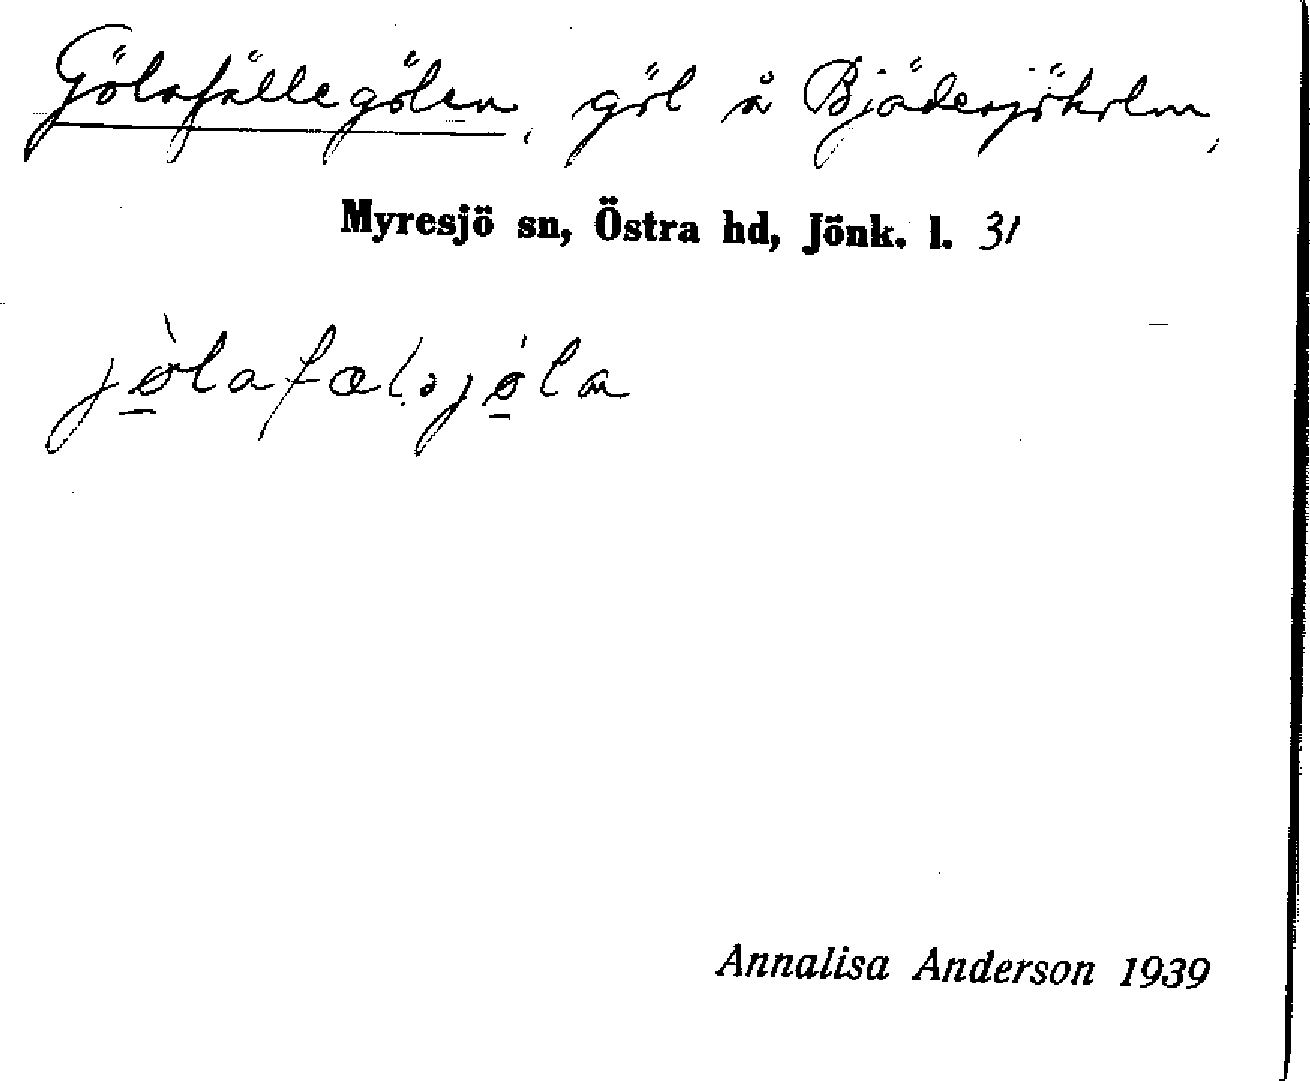 Gölafällegölen, göl å Bjädesjöholm,
Myresjö sn, Östra hd, Jönk. l. 31
jø̀lafælǝjø̀la
Annalisa Anderson 1939